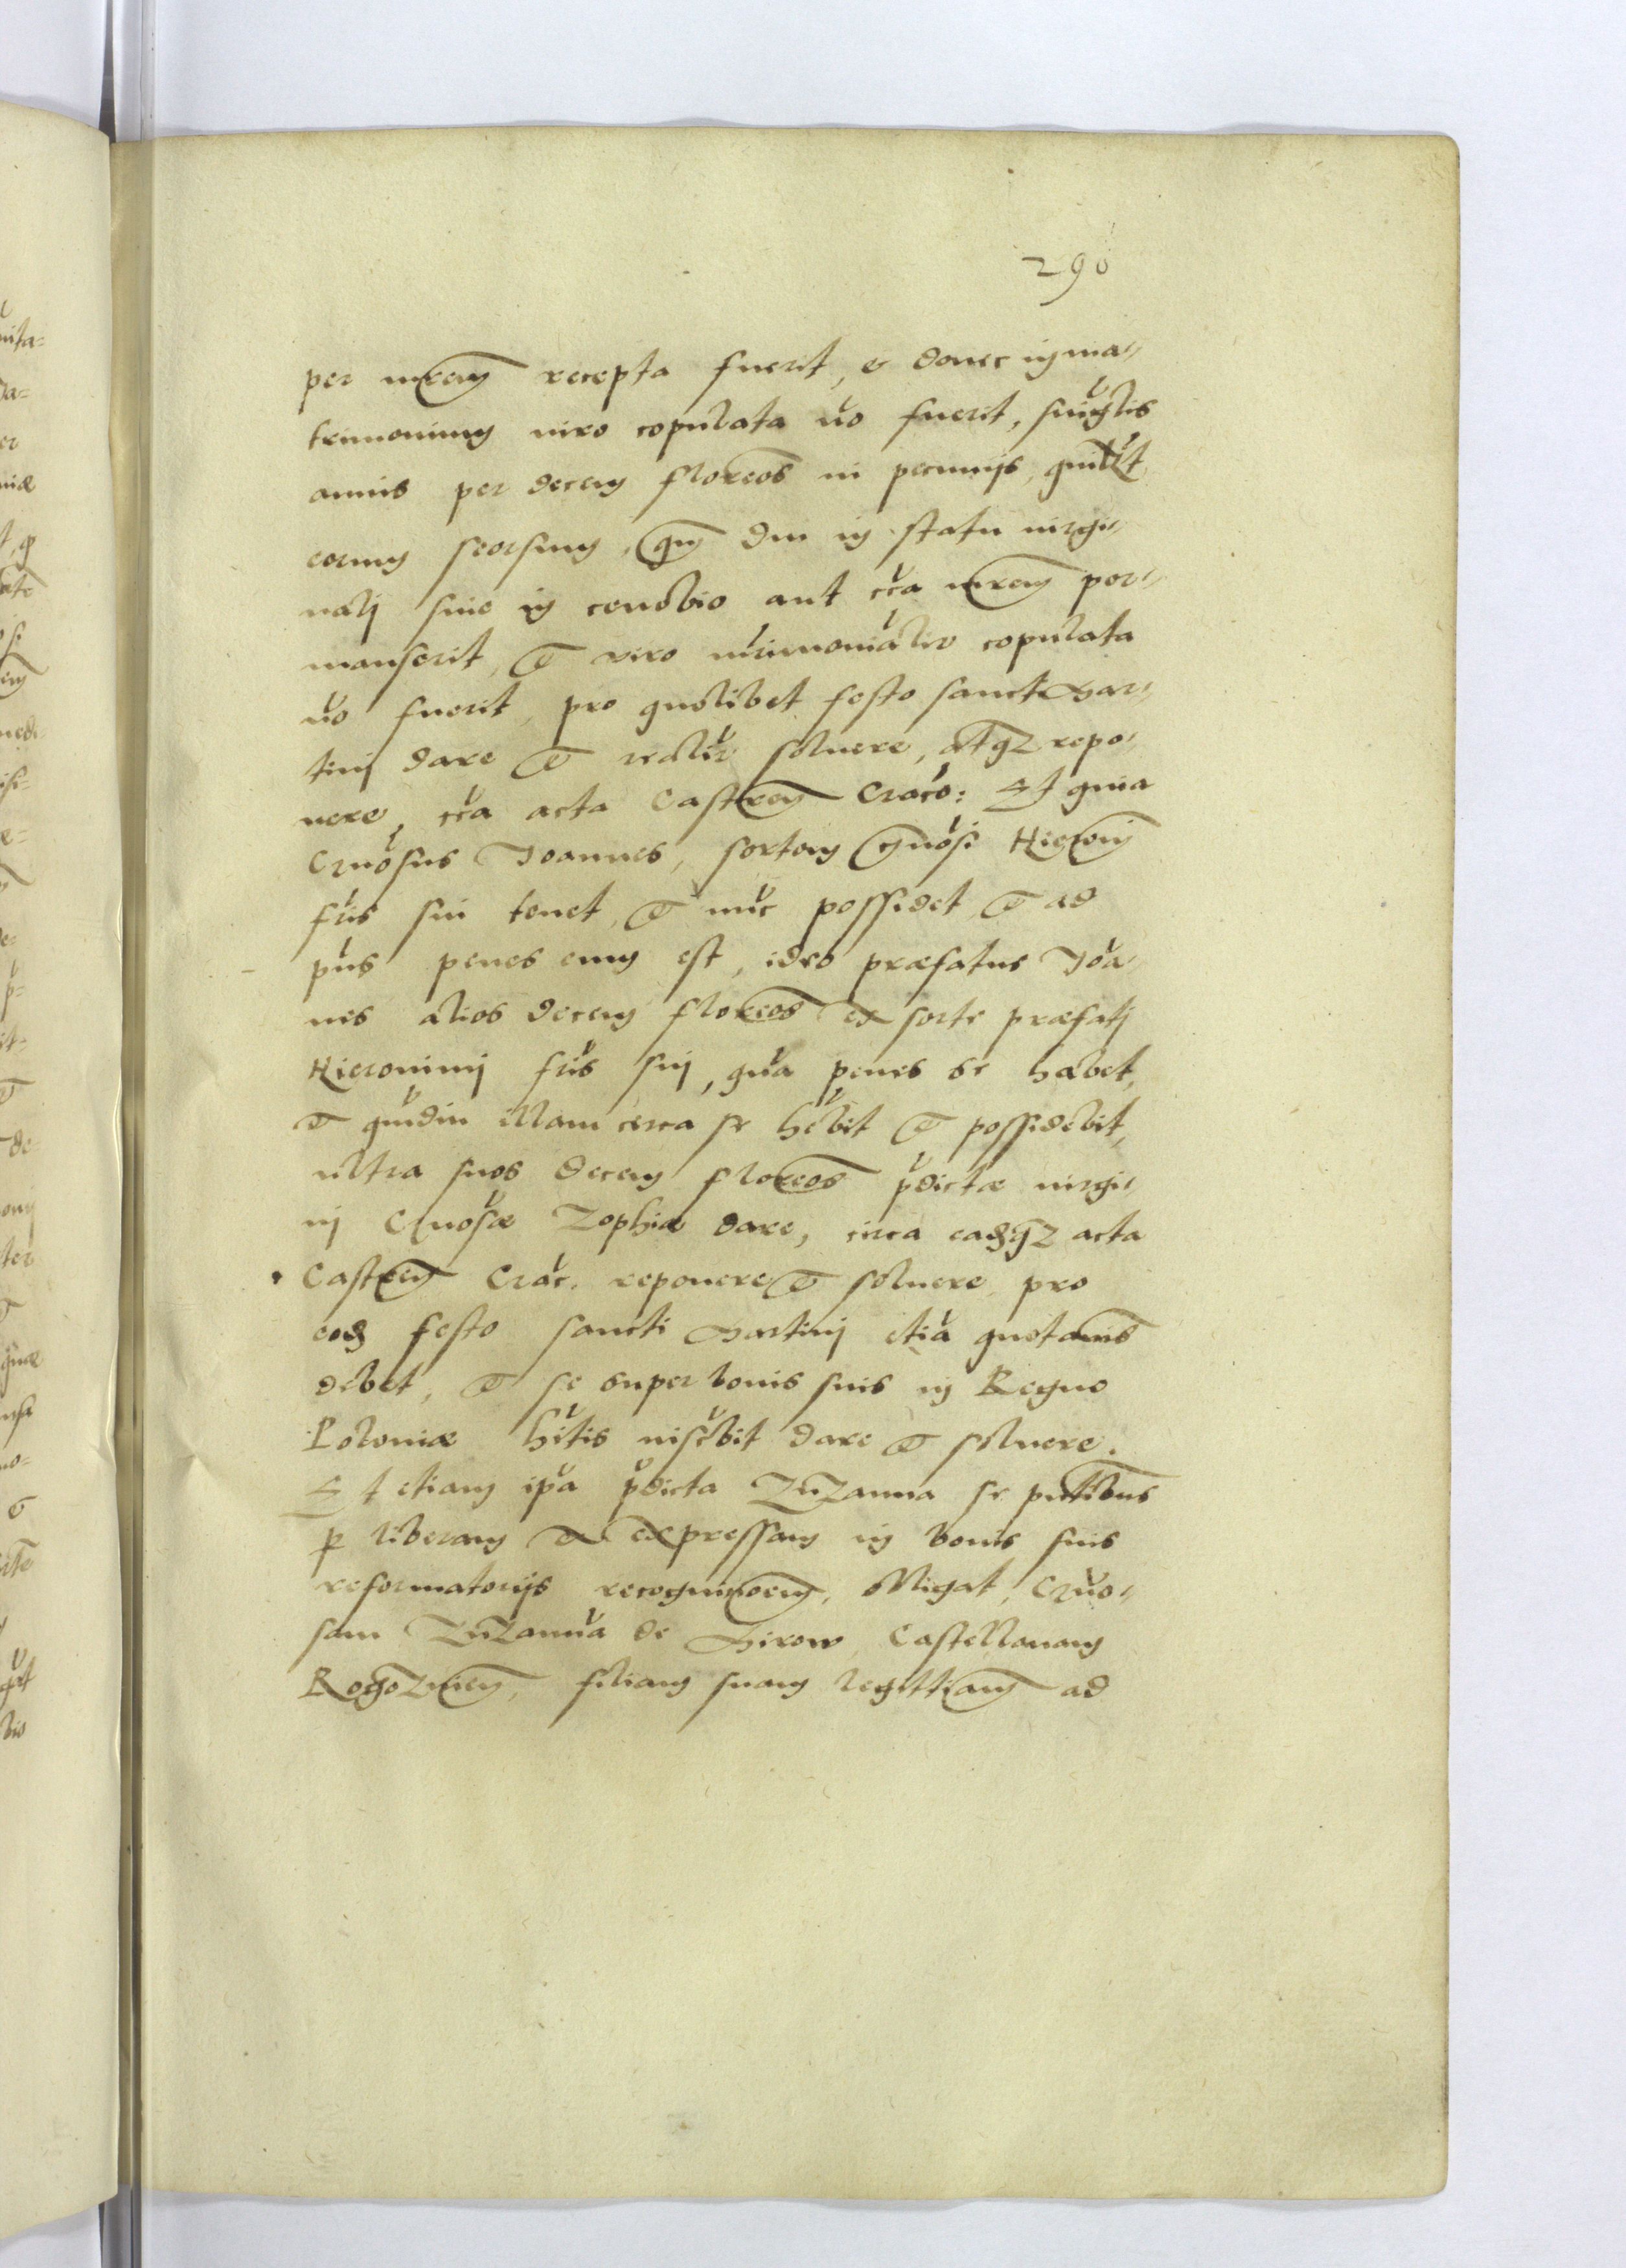 290
per mrem recepta fuerit, & donec in ma-
trimonium viro copulata no fuerit, singlis
annis per decem florenos in pecunijs, quilt
eorum seorsim, qm diu in statu virgi-
nali siue in cenobio aut cca mrem per-
manserit, et viro mrimonialr copulata
no fuerit, pro quolibet festo sancti Mar-
tinj dare et realir soluere, atqz repo-
nere, cca acta Castren Craco: Et quia
Gnosus Joannes, sortem Gnosi Hieronimj
fris sui tenet, et nuc possidet, et ad
pns penes eum est, ideo præfatus Joa-
nes alios decem florenos ex sorte præfatj
Hieronimj fris sui, qua penes se habet,
et qudiu illam circa se hebit et possidebit,
ultra suos decem florenos pdictæ virgi-
nj Gnosæ Zophiæ dare, circa eadqz acta
Castren Crac. reponere et soluere pro
eod festo sancti Martinj etia quotannis
debet, et se super bonis suis in Regno
Poloniæ hitis inscbit dare et soluere.
Et etiam ipa pdicta Zuzanna se pntibus
p liberam et expressam in bonis suis
reformatorijs recognicoem, obligat, Gno-
sam Zuzanna de Girow Castellanam
Rogoznien, filiam suam legittimam ad